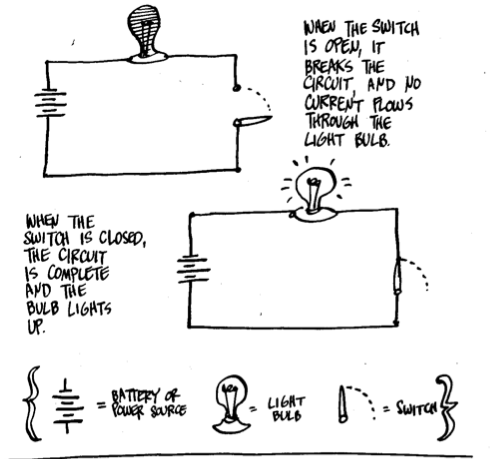 WHEN THE SWITCH
IS OPEN, IT
BREAKS THE
CIRCUIT, AND NO
CURRENT FLOWS
THROUGH THE
LIGHT BULB.
WHEN THE
SWITCH IS CLOSED,
THE CIRCUIT
IS COMPLETE
AND THE
BULB LIGHTS
UP.
= BATTERY OR
POWER SOURCE
= LIGHT
BULB
= SWITCH